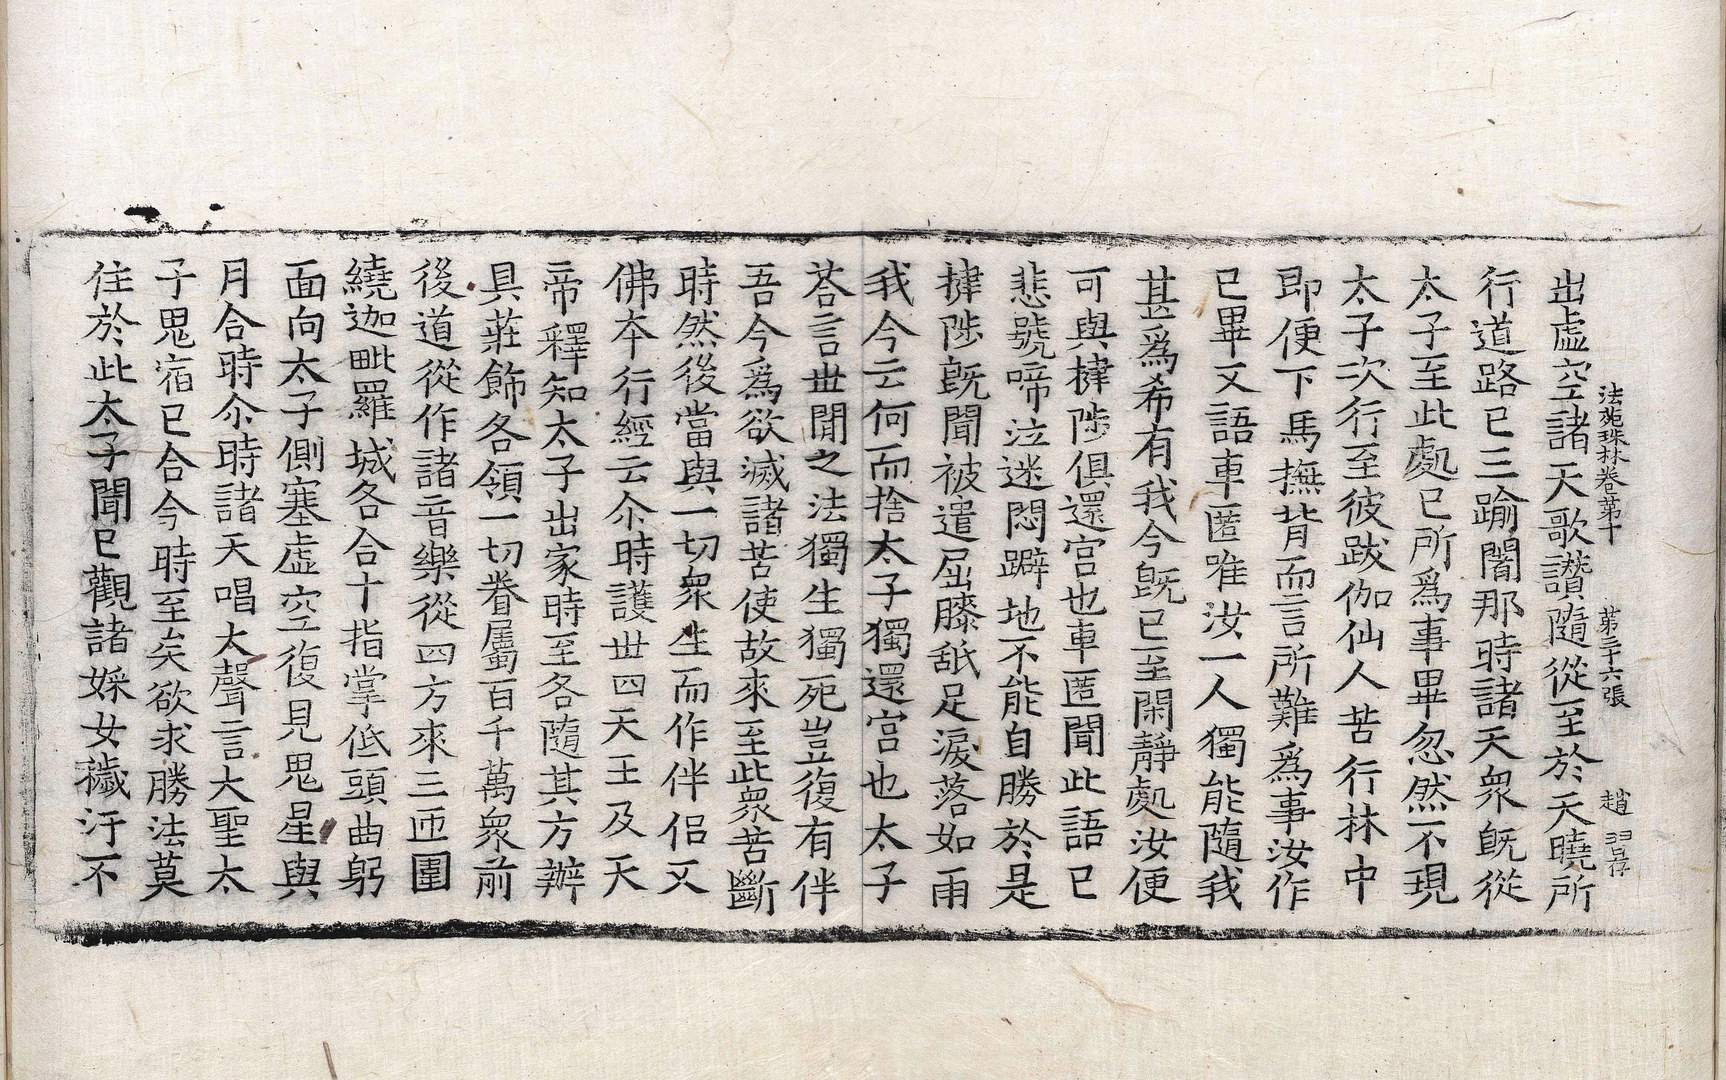 法苑珠林卷第十 第二十六張 趙
出虛空諸天歌讚隨從至於天曉所
行道路已三踰闍那時諸天衆旣從
太子至此處已所爲事畢忽然不現
太子次行至彼跋伽仙人苦行林中
即便下馬撫背而言所難爲事汝作
已畢又語車匿唯汝一人獨能隨我
甚爲希有我今旣已至閑靜處汝便
可與揵陟俱還宮也車匿聞此語已
悲號啼泣迷悶躃地不能自勝於是
揵陟旣聞被遣屈膝舐足淚落如雨
我今云何而捨太子獨還宮也太子
荅言世閒之法獨生獨死豈復有伴
吾今爲欲滅諸苦使故來至此衆苦斷
時然後當與一切衆生而作伴侶又
佛夲行經云尒時護世四天王及天
帝釋知太子出家時至各隨其方辦
具莊飾各領一切眷屬百千萬衆前
後道從作諸音樂從四方來三匝圍
繞迦毗羅城各合十指掌低頭曲躬
面向太子側塞虛空復見鬼星與
月合時尒時諸天唱大聲言大聖太
子鬼宿已合今時至矣欲求勝法莫
住於此太子聞已觀諸婇女穢汙不